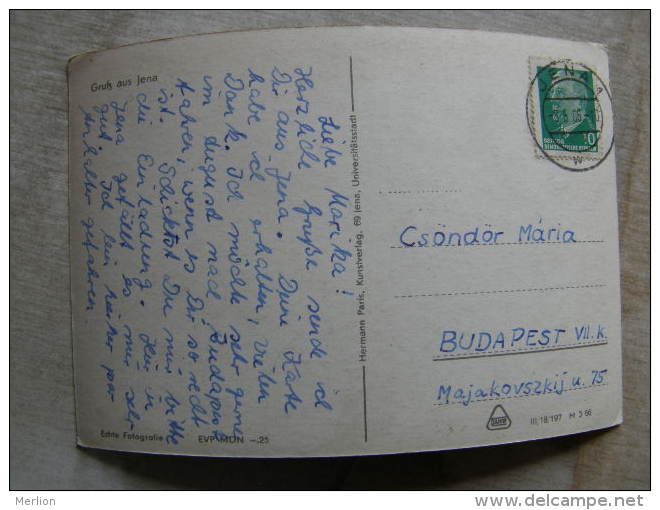 Gruß aus Jena
Liebe Marika!
Herzliche Grüße sende ich
Dir aus Jena. Deine Karte
habe ich erhalten, vielen
Dank. Ich möchte sehr gerne
im August nach Budapest
fahren, wenn es Dir so recht
ist. Schicktst Du mir bitte
die Einladung. Hier in
Jena gefällt es mir sehr
gut. Ich bin hierher per
Anhalter gefahren
Echte Fotografie
EVP MDN —.25
Hermann Paris, Kunstverlag, 69 Jena, Universitätsstadt
JENA 1
Csöndör Mária
BUDAPEST VII. k.
Majakovszkij u. 75
III/18/197 H 3 66
Merlion
www.delcampe.net